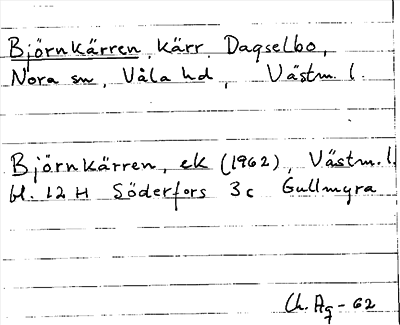 Björnkärren, kärr, Dagselbo,
Nora sn, Våla hd, Västm. l.
Björnkärren, ek (1962), Västm. l.
bl. 12 H Söderfors 3c Gullmyra
Ch. Ag - 62